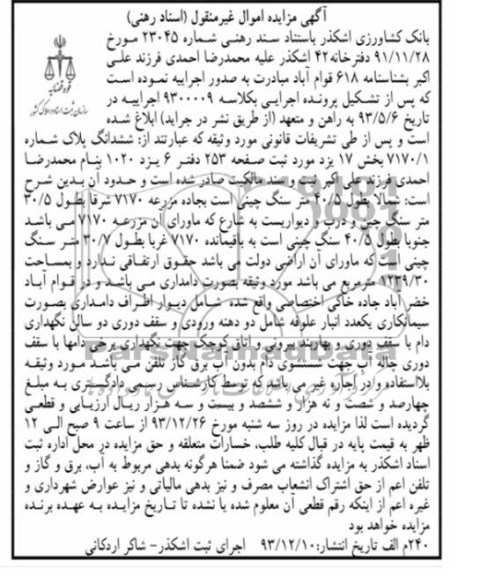 آگهی مزایده اموال غیرمنقول (اسناد رهنی)
بانک کشاورزی اشکذر باستناد سند رهنی شماره ۲۳۰۴۵ مورخ
۹۱/۱۱/۲۸ دفترخانه ۴۲ اشکذر علیه محمدرضا احمدی فرزند علی
اکبر بشناسنامه ۶۱۸ قوام آباد مبادرت به صدور اجراییه نموده است
که پس از تشکیل پرونده اجرایی بکلاسه ۹۳۰۰۰۰۹ اجراییه در
تاریخ ۹۳/۵/۶ به راهن و متعهد (از طریق نشر در جراید) ابلاغ شده
است و پس از طی تشریفات قانونی مورد وثیقه که عبارتند از: ششدانگ پلاک شماره
۷۱۷۰/۱ بخش ۱۷ یزد مورد ثبت صفحه ۲۵۳ دفتر ۶ یزد ۱۰۲۰ بنام محمدرضا
احمدی فرزند علی اکبر ثبت و سند مالکیت صادر شده است و حدود آن بدین شرح
است: شمالا بطول ۴۰/۵ متر سنگ چینی است بجاده مزرعه ۷۱۷۰ شرقا بطول ۳۰/۵
متر سنگ چین و درب و دیواریست به شارع که ماورای آن مزرعه ۷۱۷۰ می باشد
جنوبا بطول ۴۰/۵ سنگ چینی است به باقیمانده ۷۱۷۰ غربا بطول ۳۰/۷ متر سنگ
چینی است که ماورای آن اراضی دولت می باشد حقوق ارتفاقی ندارد و بمساحت
۱۲۳۹/۳۰ مترمربع می باشد مورد وثیقه بصورت دامداری می باشد و در قوام آباد
خضرآباد جاده خاکی اختصاصی واقع شده شامل دیوار اطراف دامداری بصورت
سیمانکاری یکعدد انبار علوفه شامل دو دهنه ورودی و سقف دوری دو سالن نگهداری
دام با سقف دوری و بهاربند بیرونی و اتاق کوچک جهت نگهداری برخی دامها با سقف
دوری چاله آب جهت شستشوی دام بدون آب برق گاز تلفن می باشد مورد وثیقه
بلااستفاده و در اجاره غیر می باشد که توسط کارشناس رسمی دادگستری به مبلغ
چهارصد و شصت و نه هزار و ششصد و بیست و سه هزار ریال ارزیابی و قطعی
گردیده است لذا مزایده در روز سه شنبه مورخ ۹۳/۱۲/۲۶ از ساعت ۹ صبح الی ۱۲
ظهر به قیمت پایه در قبال کلیه طلب، خسارات متعلقه و حق مزایده در محل اداره ثبت
اسناد اشکذر به مزایده گذاشته می شود ضمنا هرگونه بدهی مربوط به آب، برق و گاز و
تلفن اعم از حق اشتراک انشعاب مصرف و نیز بدهی مالیاتی و نیز عوارض شهرداری و
غیره اعم از اینکه رقم قطعی آن معلوم شده یا نشده تا تاریخ مزایده به عهده برنده
مزایده خواهد بود
۲۴۰م الف تاریخ انتشار: ۹۳/۱۲/۱۰ اجرای ثبت اشکذر- شاکر اردکانی
قوه قضائیه
سازمان ثبت اسناد و املاک کشور
ParsNamadData